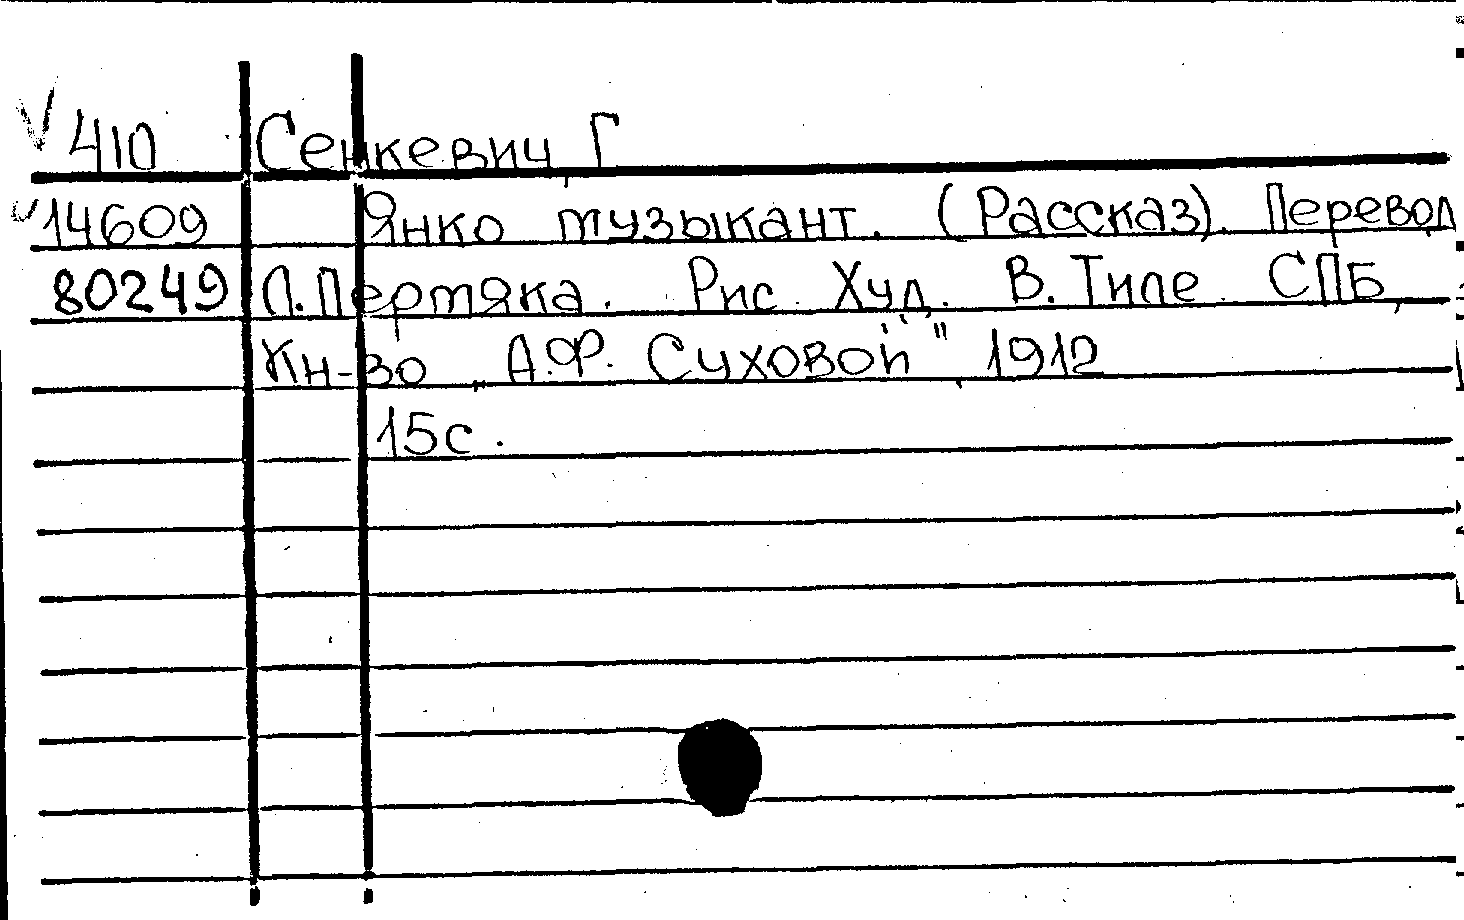 410 Сенкевич Г
14609 Янко музыкант. (Рассказ). Перевод
80249 Л. Пертяка. Рис. Худ. В. Типе СПБ,
Кн-во „А.Ф. Суховой", 1912
15с.